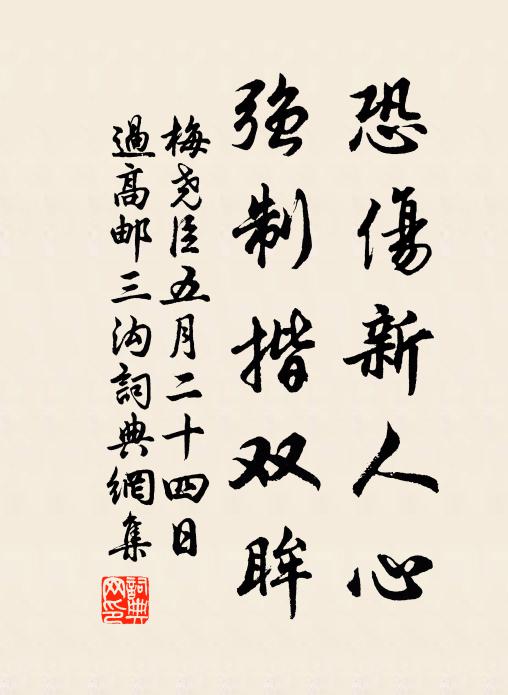 恐傷新人心
强制揩双眸
梅尧臣五月二十四日
過高邮三沟詞典網集
詞典網印